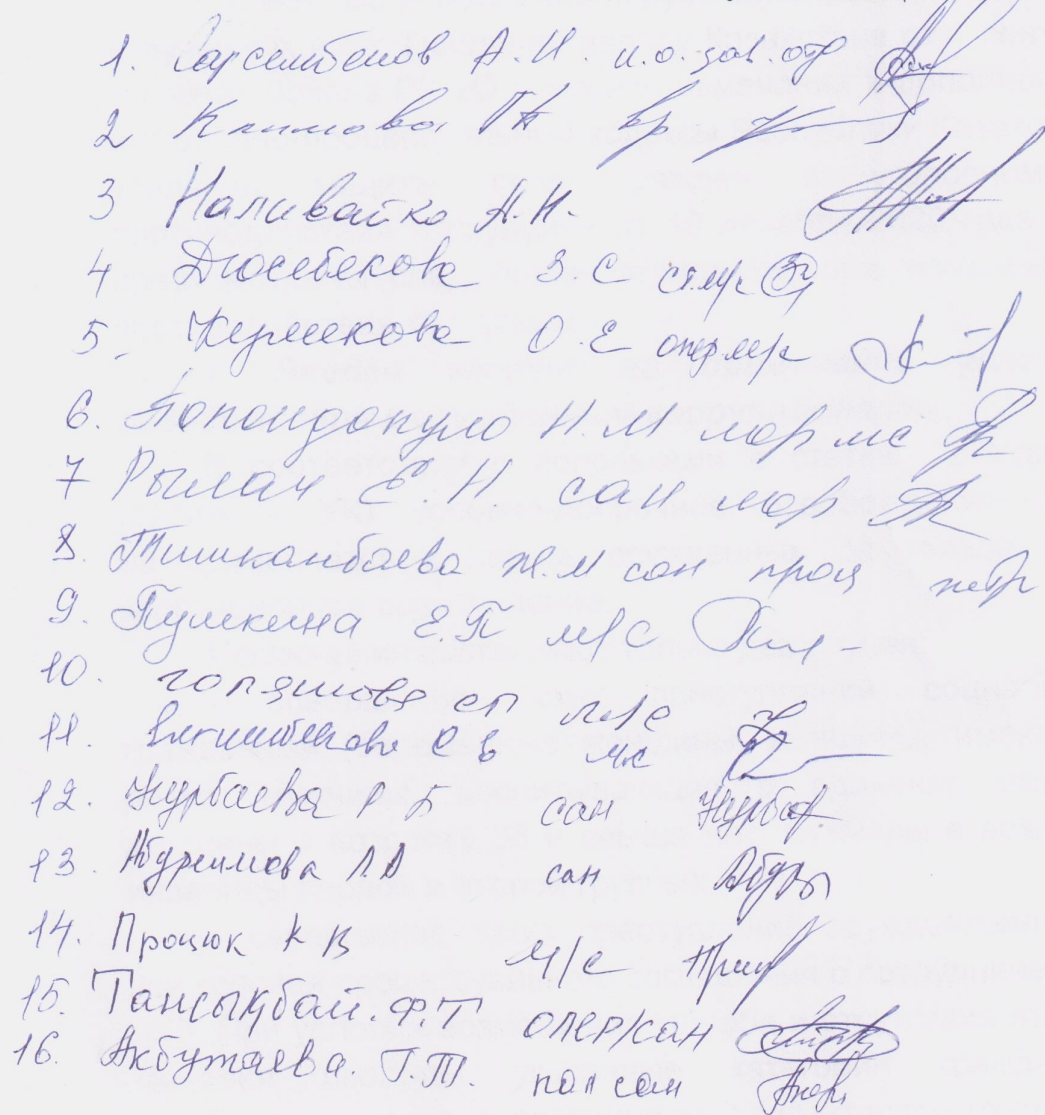 1. Сарсембенов А.И. и.о. зав. отд
2 Климова ГА вр
3 Наливайко А.Н.
4 Дюсебекова З.С ст.м/с
5. Кумекова О.Е опер м/с
6. Попондопуло Н.М пор мс
7 Рылач Е.Н сан пор
8. Тишканбаева Ж.М сан проц
9. Пушкина Е.П м/с
10. Голяшова СП м/с
11. С В мс
12. Нурбаева Р Б сан Нурбаf
13. Абдреимова ЛА сан
14. Процюк К В м/с
15. Тансықбай. Ф.Т опер/сан
16. Акбутаева. Г.Т. пол сан